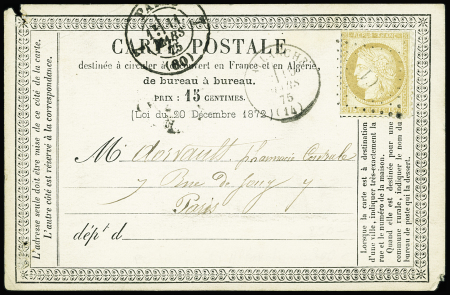 CARTE POSTALE
destinée à circuler à découvert en France et en Algérie,
de bureau à bureau.
PRIX : 15 CENTIMES.
(Loi du 20 Décembre 1872.)
MARS
75
(60)
75
(14)
M Dorvault, pharmacie Centrale
7 Rue de Jouy 7
Paris
dép.t d
L'adresse seule doit être mise de ce côté de la carte.
L'autre côté est réservé à la correspondance.
Lorsque la carte est à destination
d'une ville, indiquer très-exactement la
rue et le numéro de la maison.
Quand elle est destinée pour une
commune rurale, indiquer le nom du
bureau de poste qui la dessert.